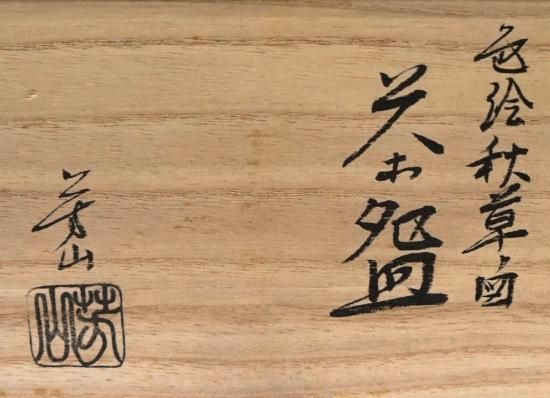 色絵秋草画
茶盌
芳山
芳山